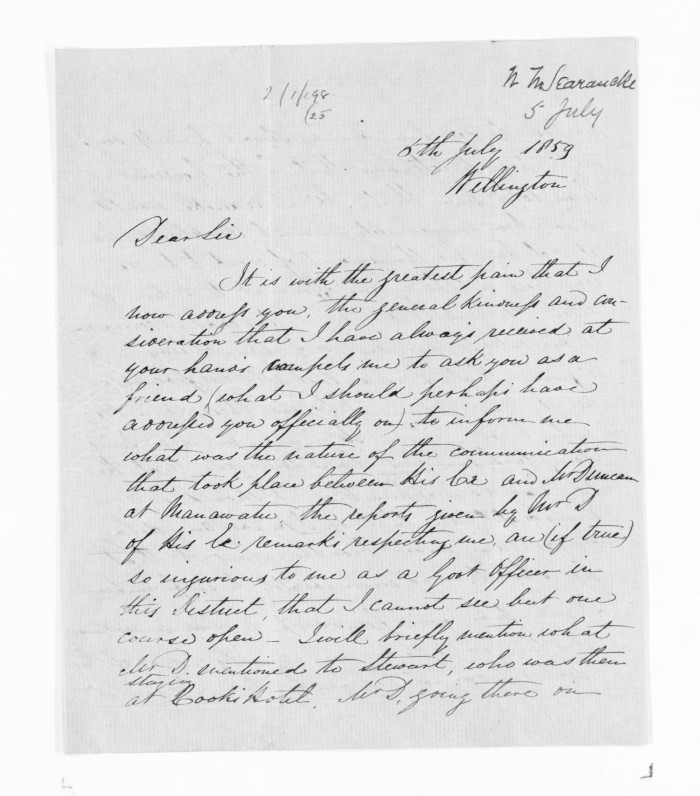 N Searancke
5 July
2/1/198
/25
5th July 1859
Wellington
Dear Sir
It is with the greatest pain that I
now address you, the general kindness and con-
sideration that I have always received at
your hands compels me to ask you as a
friend (what I should perhaps have
addressed you officially on) to inform me
what was the nature of the communication
that took place between His Ex and Mr Duncan
at Manawatu, the reports given by Mr D
of His Ex. remarks respecting me, are (if true)
so ingurious to me as a Govt Officer in
this District, that I cannot see but one
course open - I will briefly mention what
Mr D. mentioned to Stewart, who was then
staying
at Cooks Hotel, Mr D. going there on